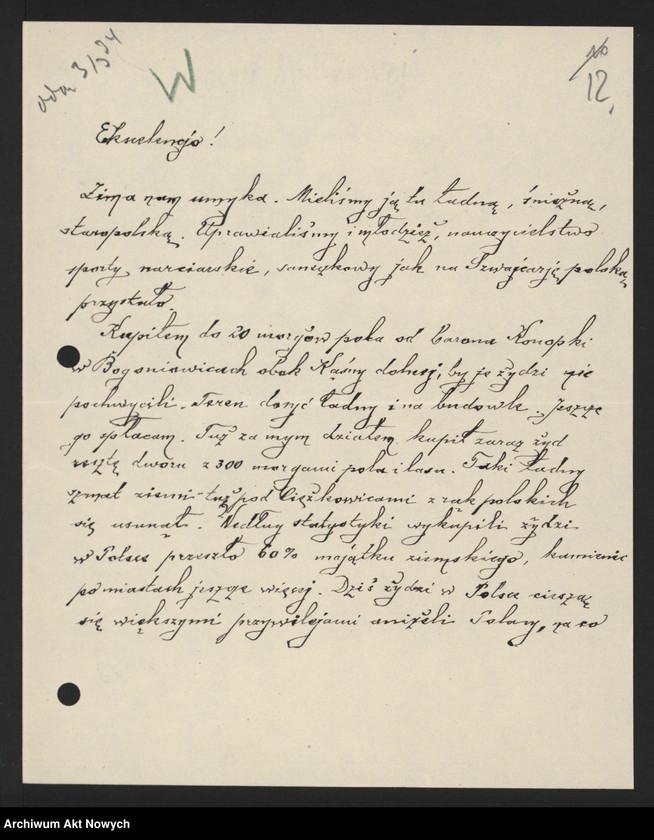 oda 3/3 34
W
12.
Ekscelencjo!
Zima nam umyka. Mieliśmy ją tu ładną, śnieżną,
staropolską. Uprawialiśmy i młodzież, nauczycielstwo
sporty narciarskie, saneczkowy jak na Szwajcarję polską
przystało.
Kupiłem do 20 morgów pola od barona Konopki
w Bogoniowicach obok Kąśny dolnej, by je żydzi nie
pochwycili. Teren dosyć ładny i na budowle. Jeszcze
go spłacam. Tuż za mym działem kupił zaraz żyd
resztę dworu z 300 morgami pola i lasu. Taki ładny
szmat ziemi tuż pod Ciężkowicami z rąk polskich
się usunął. Według statystyki wykupili żydzi
w Polsce przeszło 60% majątku ziemskiego, kamienic
po miastach jeszcze więcej. Dziś żydzi w Polsce cieszą
się większymi przywilejami aniżeli Polacy, na co
Archiwum Akt Nowych